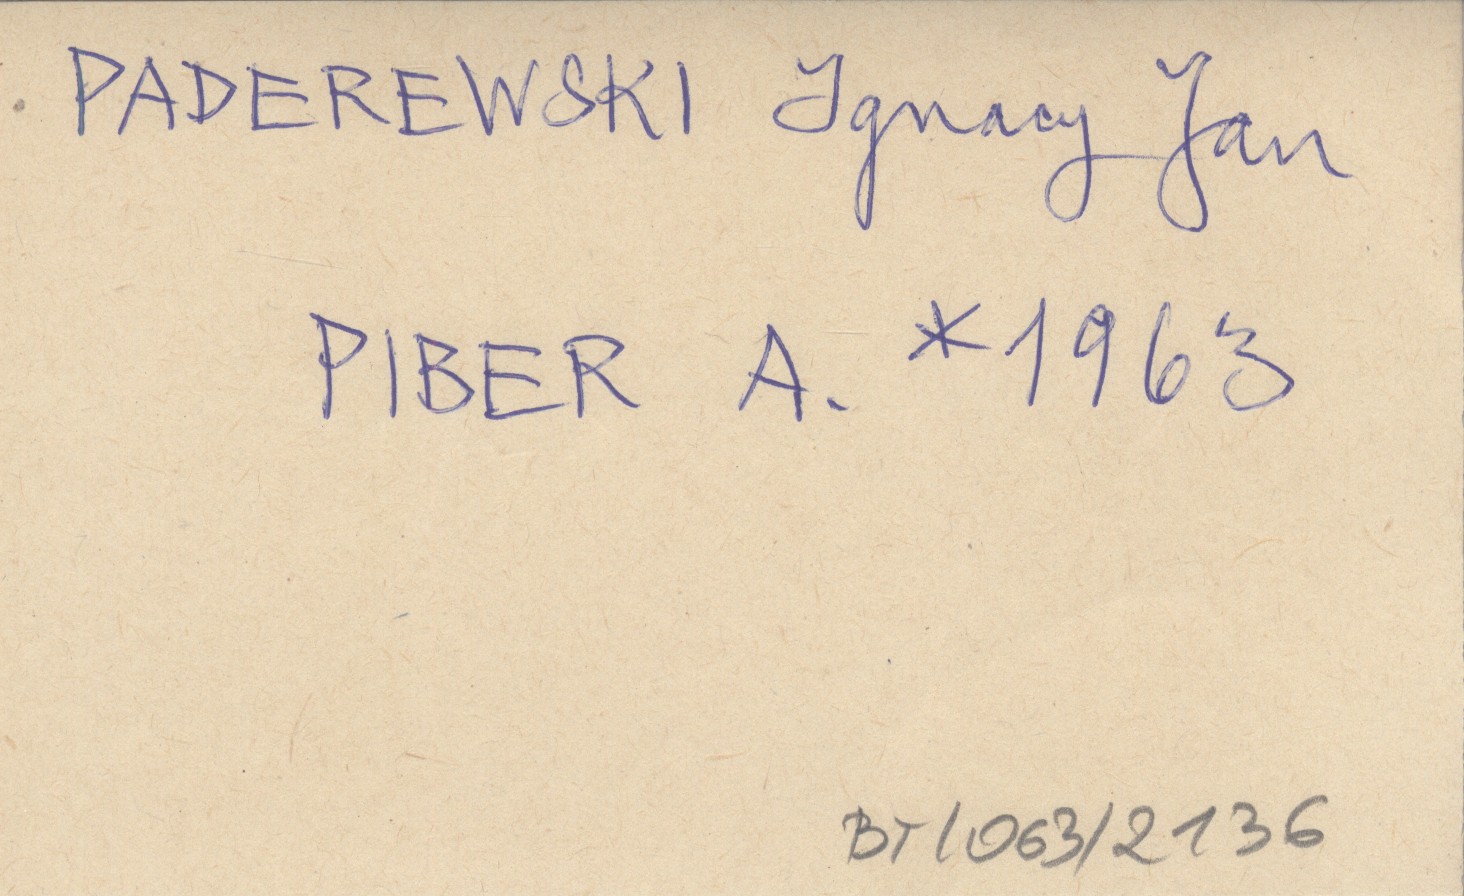 PADEREWSKI Ignacy Jan
PIBER A. *1963
BT/063/2136